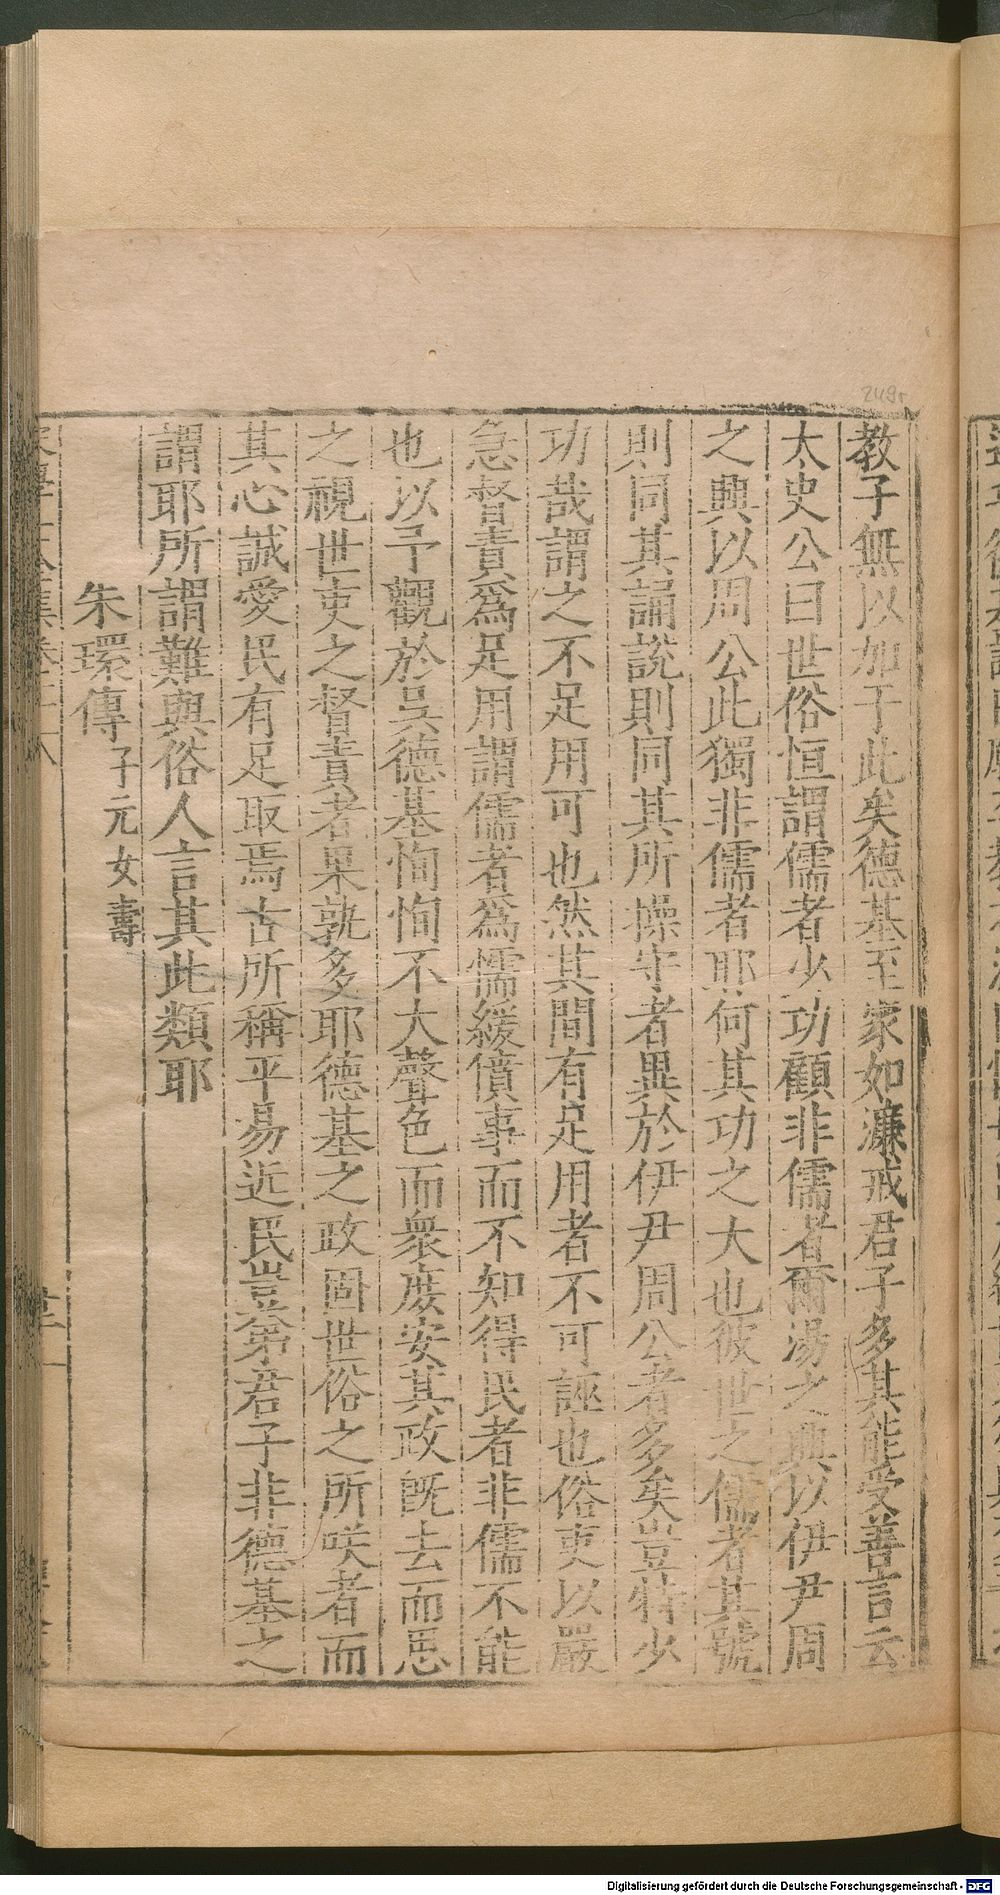 教子無以加于此矣德基至家如濂戒君子多其能受善言云
太史公曰世俗恒謂儒者少功顧非儒者爾湯之興以伊尹周
之興以周公此獨非儒者耶何其功之大也彼世之儒者其號
則同其誦說則同其所操守者異於伊尹周公者多矣豈特少
功哉謂之不足用可也然其間有足用者不可誣也俗吏以嚴
急督責爲足用謂儒者爲懦緩僨事而不知得民者非儒不能
也以予觀於吳德基恂恂不大聲色而衆庶安其政旣去而思
之視世吏之督責者果孰多耶德基之政固世俗之所咲者而
其心誠愛民有足取焉古所稱平易近民豈弟君子非德基之
謂耶所謂難與俗人言其此類耶
朱環傳子元女壽
249r
Digitalisierung gefördert durch die Deutsche Forschungsgemeinschaft - DFG